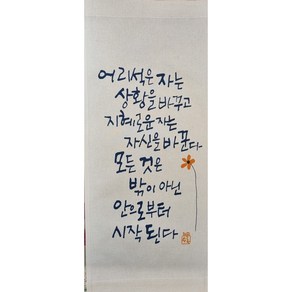 어리석은 자는
상황을 바꾸고
지혜로운 자는
자신을 바꾼다
모든 것은
밖이 아닌
안으로부터
시작 된다